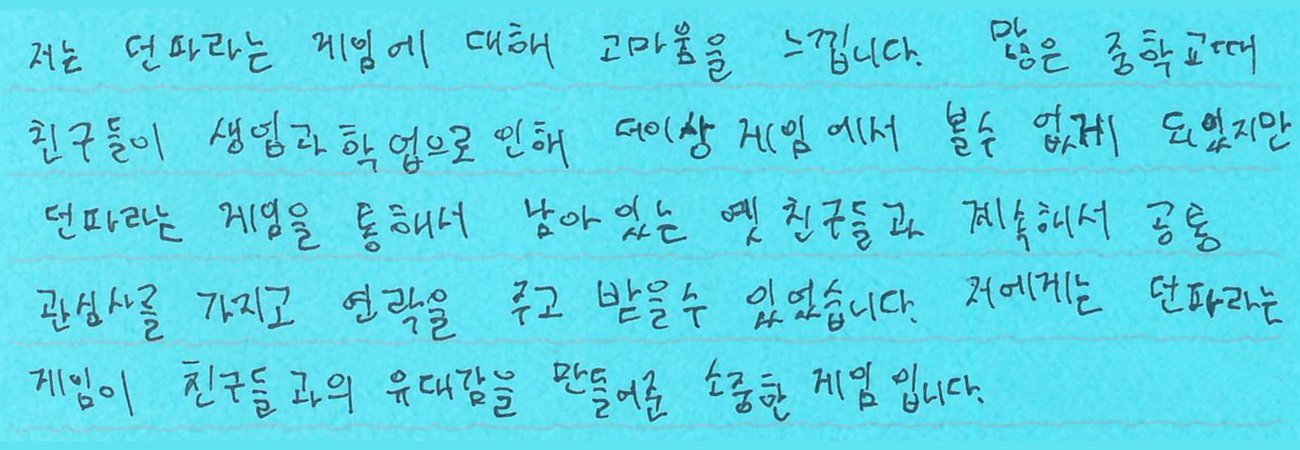 저는 던파라는 게임에 대해 고마움을 느낍니다. 많은 중학교때
친구들이 생업과 학업으로 인해 더이상 게임에서 볼수 없게 되었지만
던파라는 게임을 통해서 남아있는 옛 친구들과 계속해서 공통
관심사를 가지고 연락을 주고 받을수 있었습니다. 저에게는 던파라는
게임이 친구들과의 유대감을 만들어준 소중한 게임입니다.